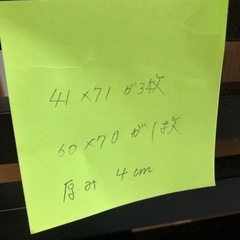 41×71が3枚
60×70が1枚
厚み 4cm